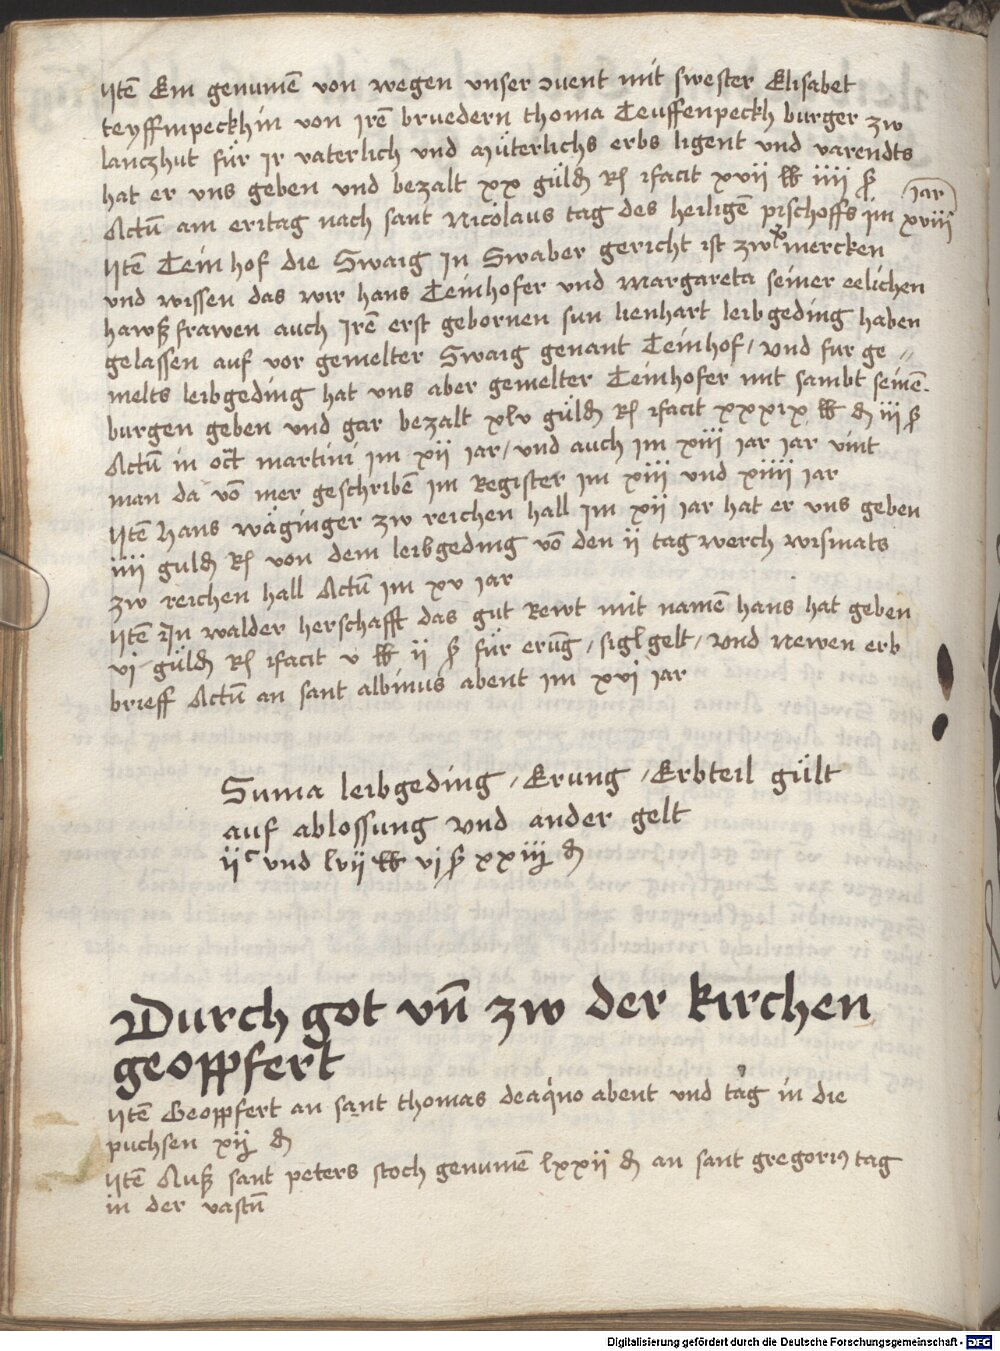 Itē Ein genumē von wegen unser ↄuent mit swester Elisabet
teyffmpeckhin von Irē bruedern thoma Teuffenpeckh burger zw
lanczhut für Ir vaterlich vnd Müterlichs erbs ligent vnd varendts
hat er vns geben vnd bezalt xx güld Rl ifacit xvii lb iiii ß
Actū am eritag nach sant Nicolaus tag des heiligē pischoffs im xviii
iar
Itē Teinhof die Swaig In Swaber gericht ist zw mercken
vnd wissen das wir hans Teinhofer vnd Margareta seiner eelichen
hawsfrawen auch Irē erst gebornen sun lienhart leibgeding haben
gelassen auf vor gemelter Swaig genant Teinhof / vnd fur ge //
melts leibgeding hat vns aber gemelter Teinhofer mit sambt seinē
burgen geben vnd gar bezalt xlv güld Rl ifacit xxxix lb d iii ß
Actū in oct martini im xii iar / vnd auch im xiii iar iar vint
man da vō mer geschribē im Register im xiii vnd xiiii iar
Itē Hans wäginger zw reichen hall Im xii iar hat er vns geben
iiii guld Rl von dem leibgeding vō den ii tagwerch wismats
zw reichen hall Actū im xv iar
Itē In walder herschafft das gut Rewt mit namē hans hat geben
vi güld Rl ifacit v lb ii ß für erūg / siglgelt / vnd Newen erb
brieff Actū an sant albinus abent im xvi iar
Suma leibgeding / Erung / Erbteil gült
auf ablossung vnd ander gelt
iiᶜ vnd lvii lb vi ß xxiij d
Durch got vn̄ zw der kirchen
geoppfert
Itē Geoppfert an sant thomas deaqͥno abent vnd tag in die
puchsen xij d
Itē Auß sant peters stoch genumē lxxii d an sant gregorius tag
in der vastn̄
Digitalisierung gefördert durch die Deutsche Forschungsgemeinschaft - DFG